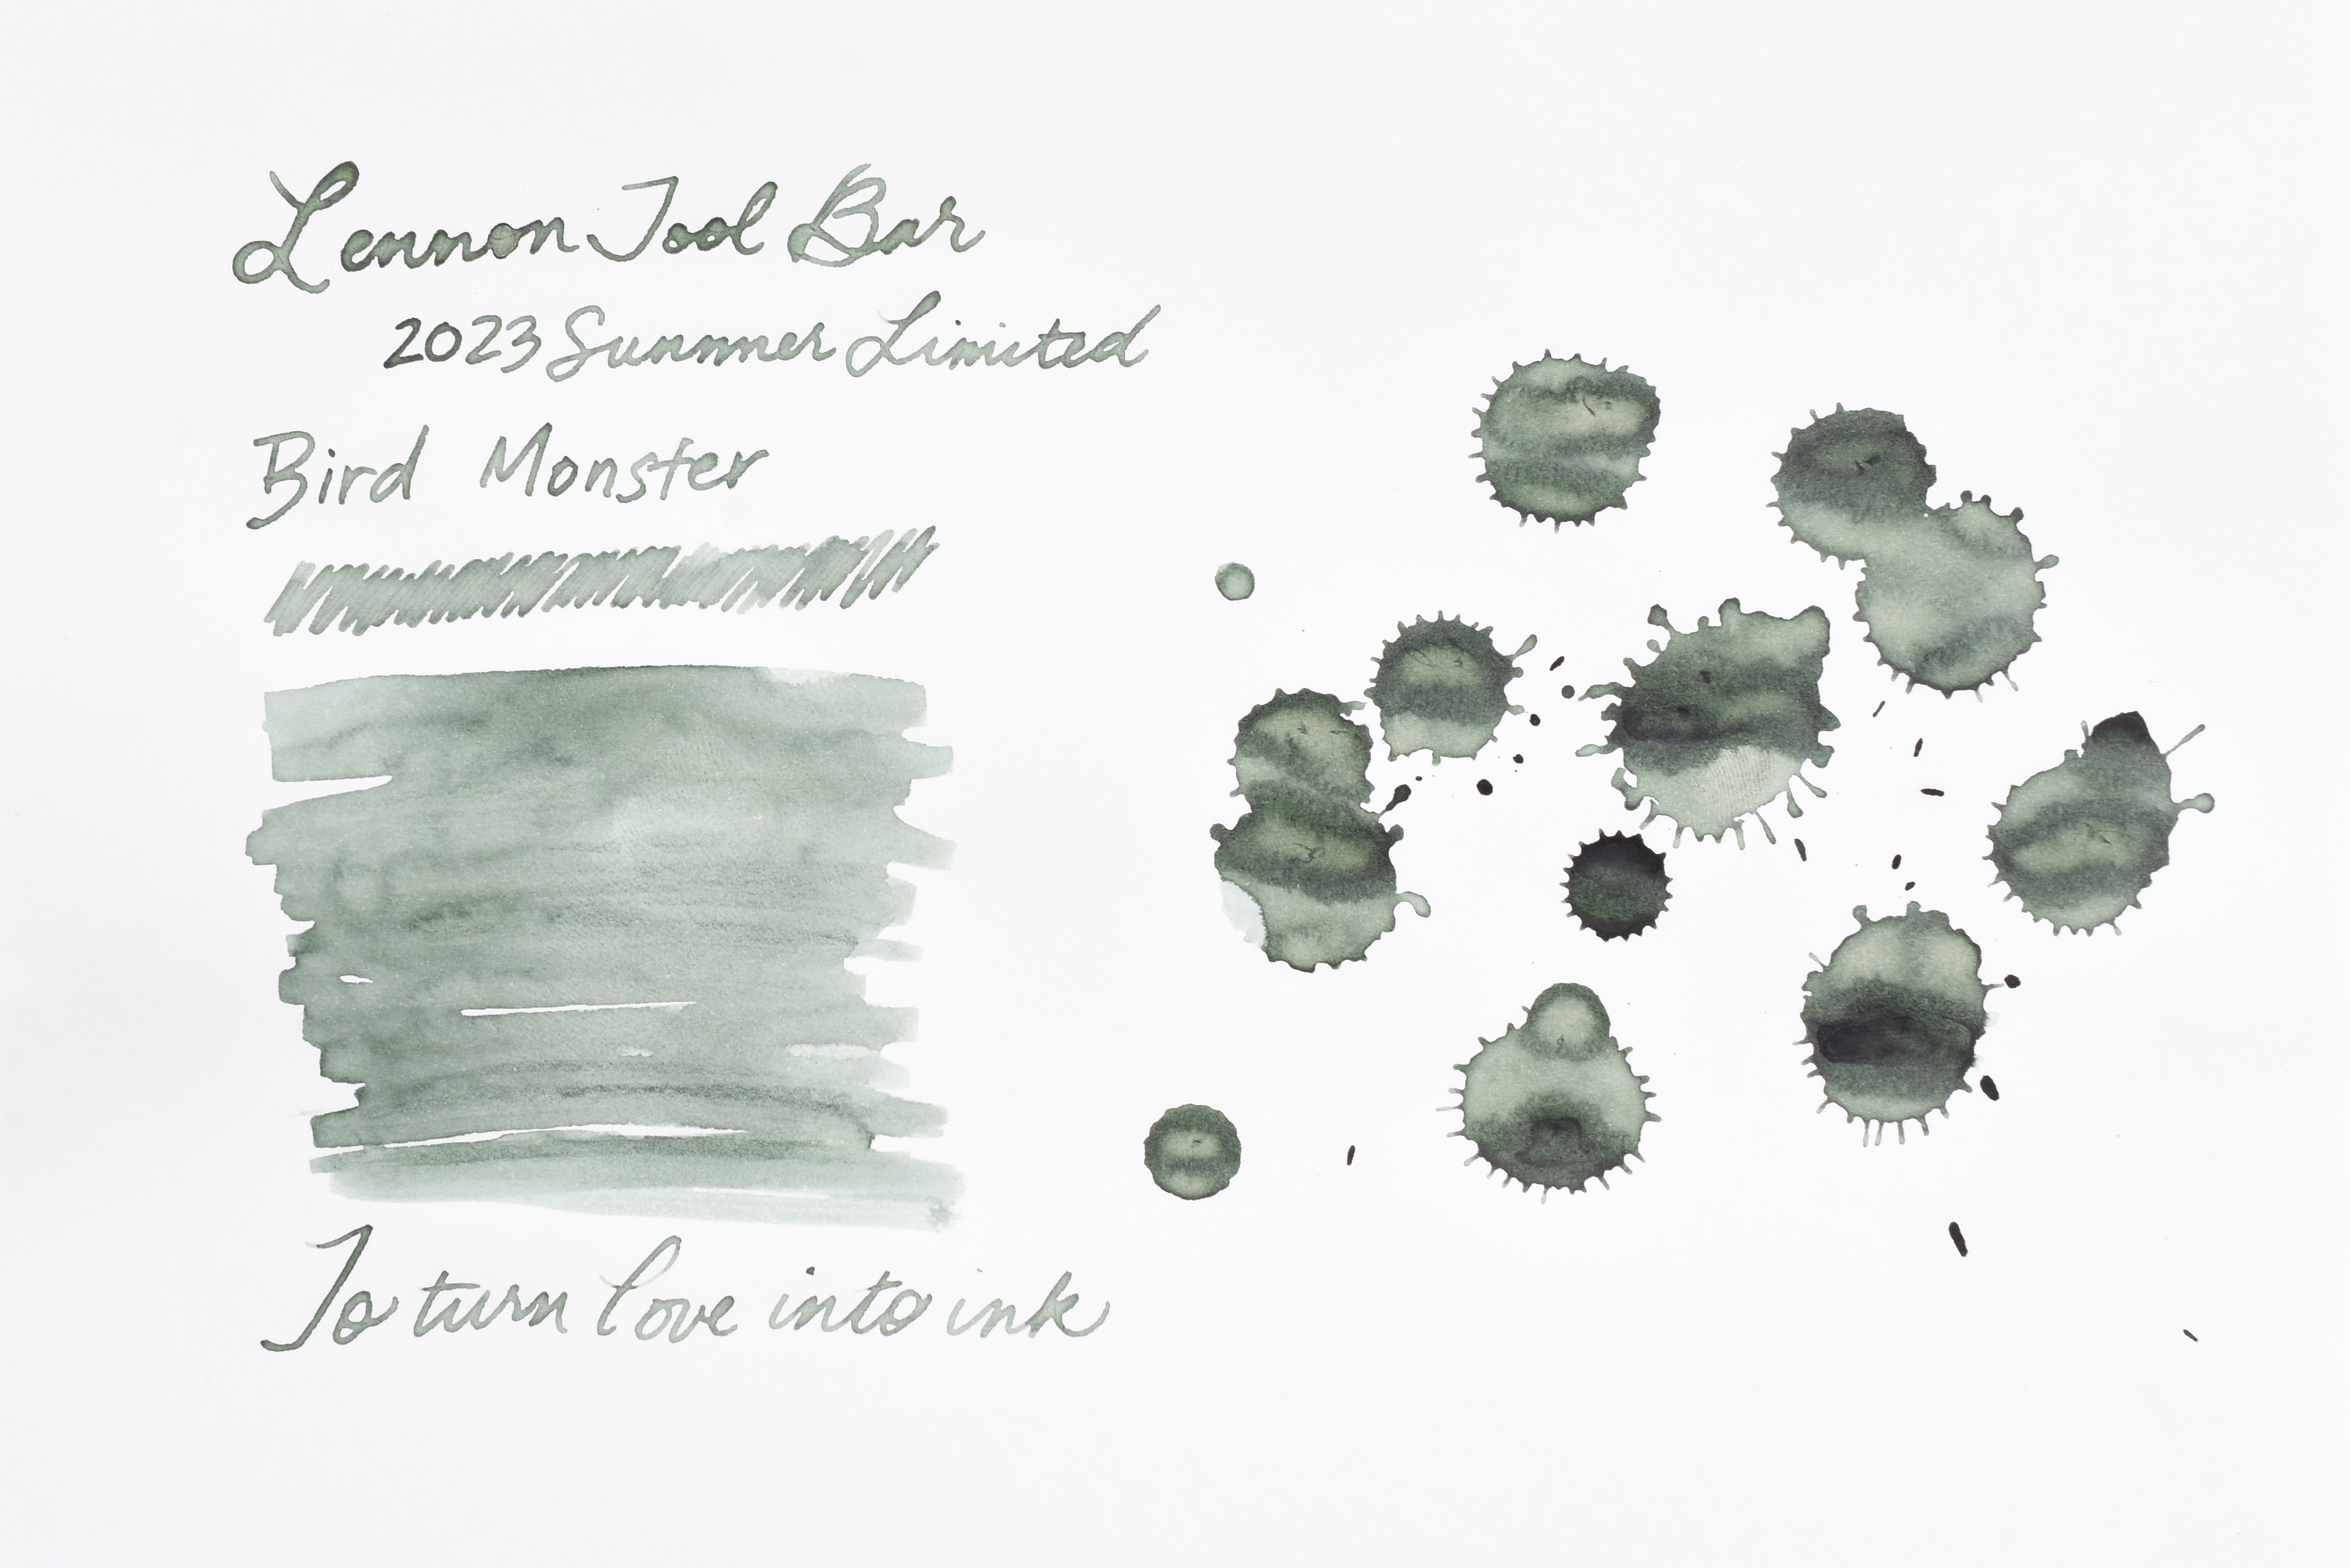 Lennon Tool Bar
2023 Summer Limited
Bird Monster
To turn love into ink